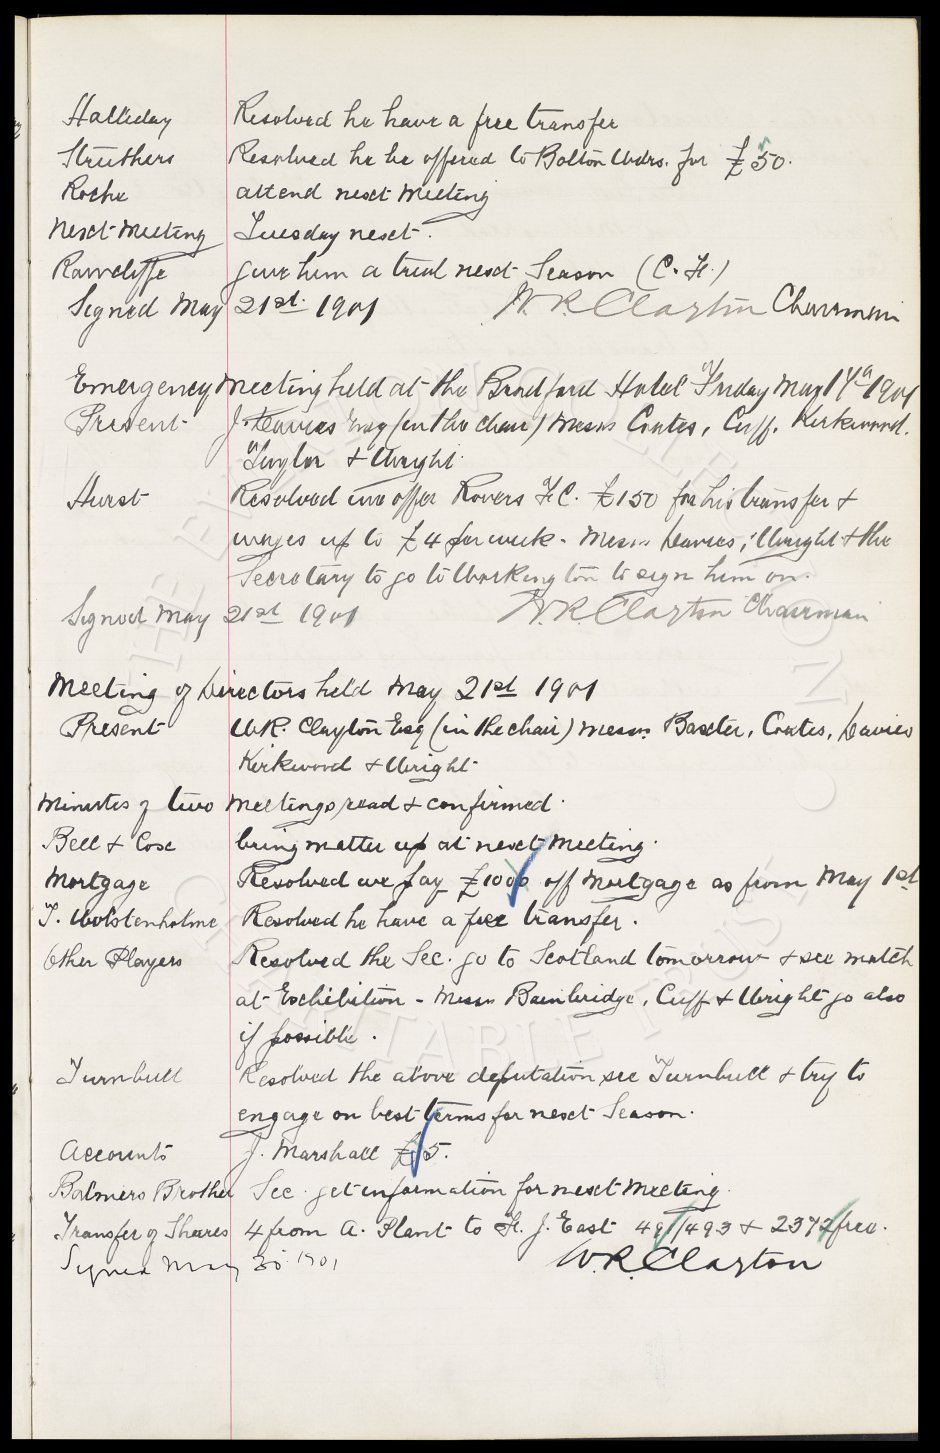 Halliday Resolved he have a free transfer
Struthers Resolved he be offered to Bolton Wdrs. for £50.
Roche attend next meeting
Next Meeting Tuesday next.
Rawcliffe give him a trial next Season (C. F.)
Signed May 21st 1901 W. R. Clayton Chairman
Emergency Meeting held at the Bradford Hotel Friday May 17th 1901
Present J. Davies Esq (in the chair) Messrs Coates, Cuff, Kirkwood.
Taylor & Wright
Hurst Resolved we offer Rovers F.C. £150 for his transfer &
wages up to £4 per week - Messrs Davies, Wright & the
Secretary to go to Workington to sign him on.
Signed May 21st 1901 W. R. Clayton Chairman
Meeting of Directors held May 21st 1901
Present W.R. Clayton Esq (in the chair) Messrs Baxter, Coates, Davies
Kirkwood & Wright
Minutes of two meetings read & confirmed.
Bell & Cox bring matter up at next meeting.
Mortgage Resolved we pay £1000 off Mortgage as from May 1st
T. Wolstenholme Resolved he have a free transfer.
Other Players Resolved the Sec. go to Scotland tomorrow & see match
at Exhibition - Messrs Bainbridge, Cuff & Wright go also
if possible.
Turnbull Resolved the above deputation see Turnbull & try to
engage on best terms for next Season.
Accounts J. Marshall £5.
Balmers Brother Sec. get information for next Meeting.
Transfer of Shares 4 from A. Plant to F. J. East 491/493 & 2372 free.
Signed May 30 1901 W.R. Clayton
THE EVERTON COLLECTION
CHARITABLE TRUST